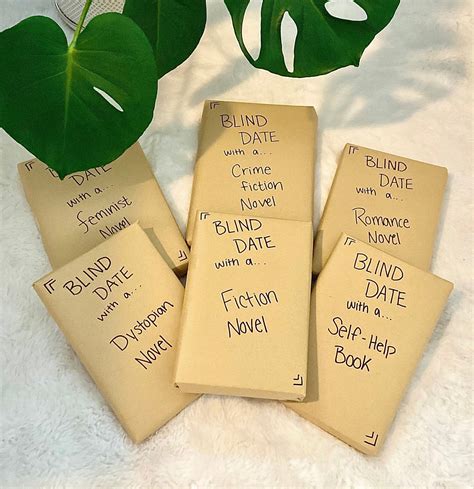 BLIND
DATE
with a...
feminist
Novel
BLIND
DATE
with a...
Crime
fiction
Novel
BLIND
DATE
with a...
Romance
Novel
BLIND
DATE
with a...
Dystopian
Novel
BLIND
DATE
with a...
Fiction
Novel
BLIND
DATE
with a...
Self-Help
Book